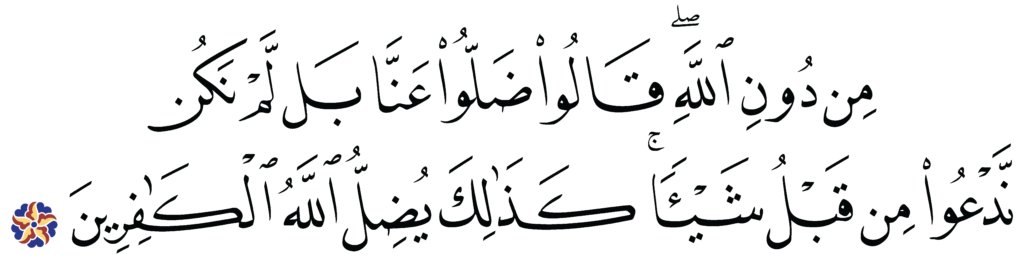 مِن دُونِ ٱللَّهِۖ قَالُوا۟ ضَلُّوا۟ عَنَّا بَل لَّمْ نَكُن
نَّدْعُوا۟ مِن قَبْلُ شَيْـًٔاۚ كَذَٰلِكَ يُضِلُّ ٱللَّهُ ٱلْكَـٰفِرِينَ